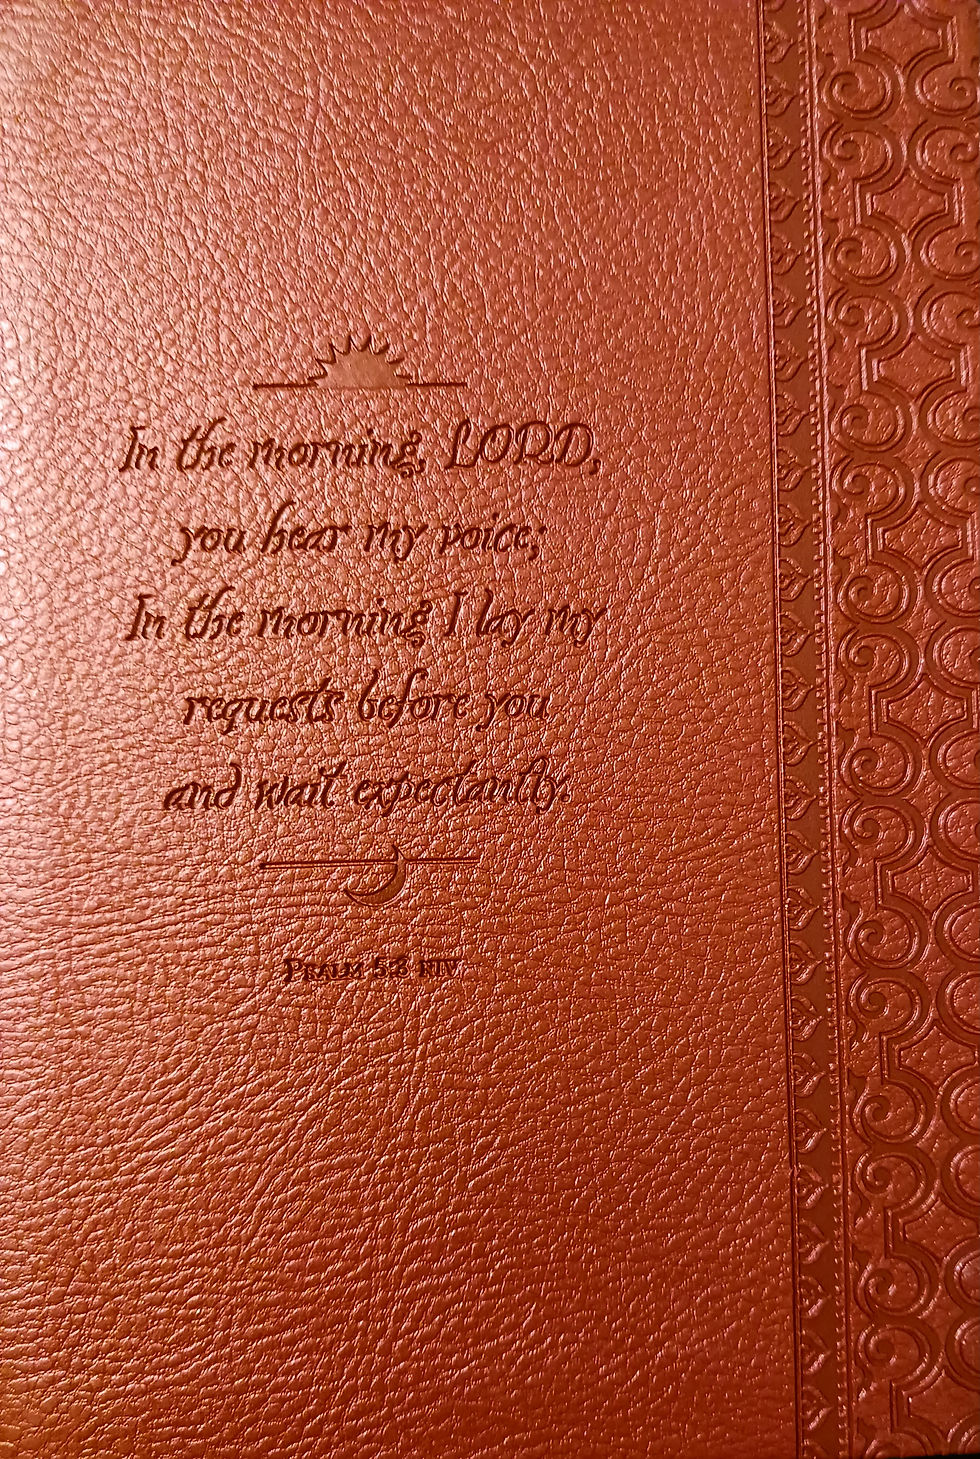 In the morning, LORD,
you hear my voice;
In the morning I lay my
requests before you
and wait expectantly.
PSALM 5:3 NIV